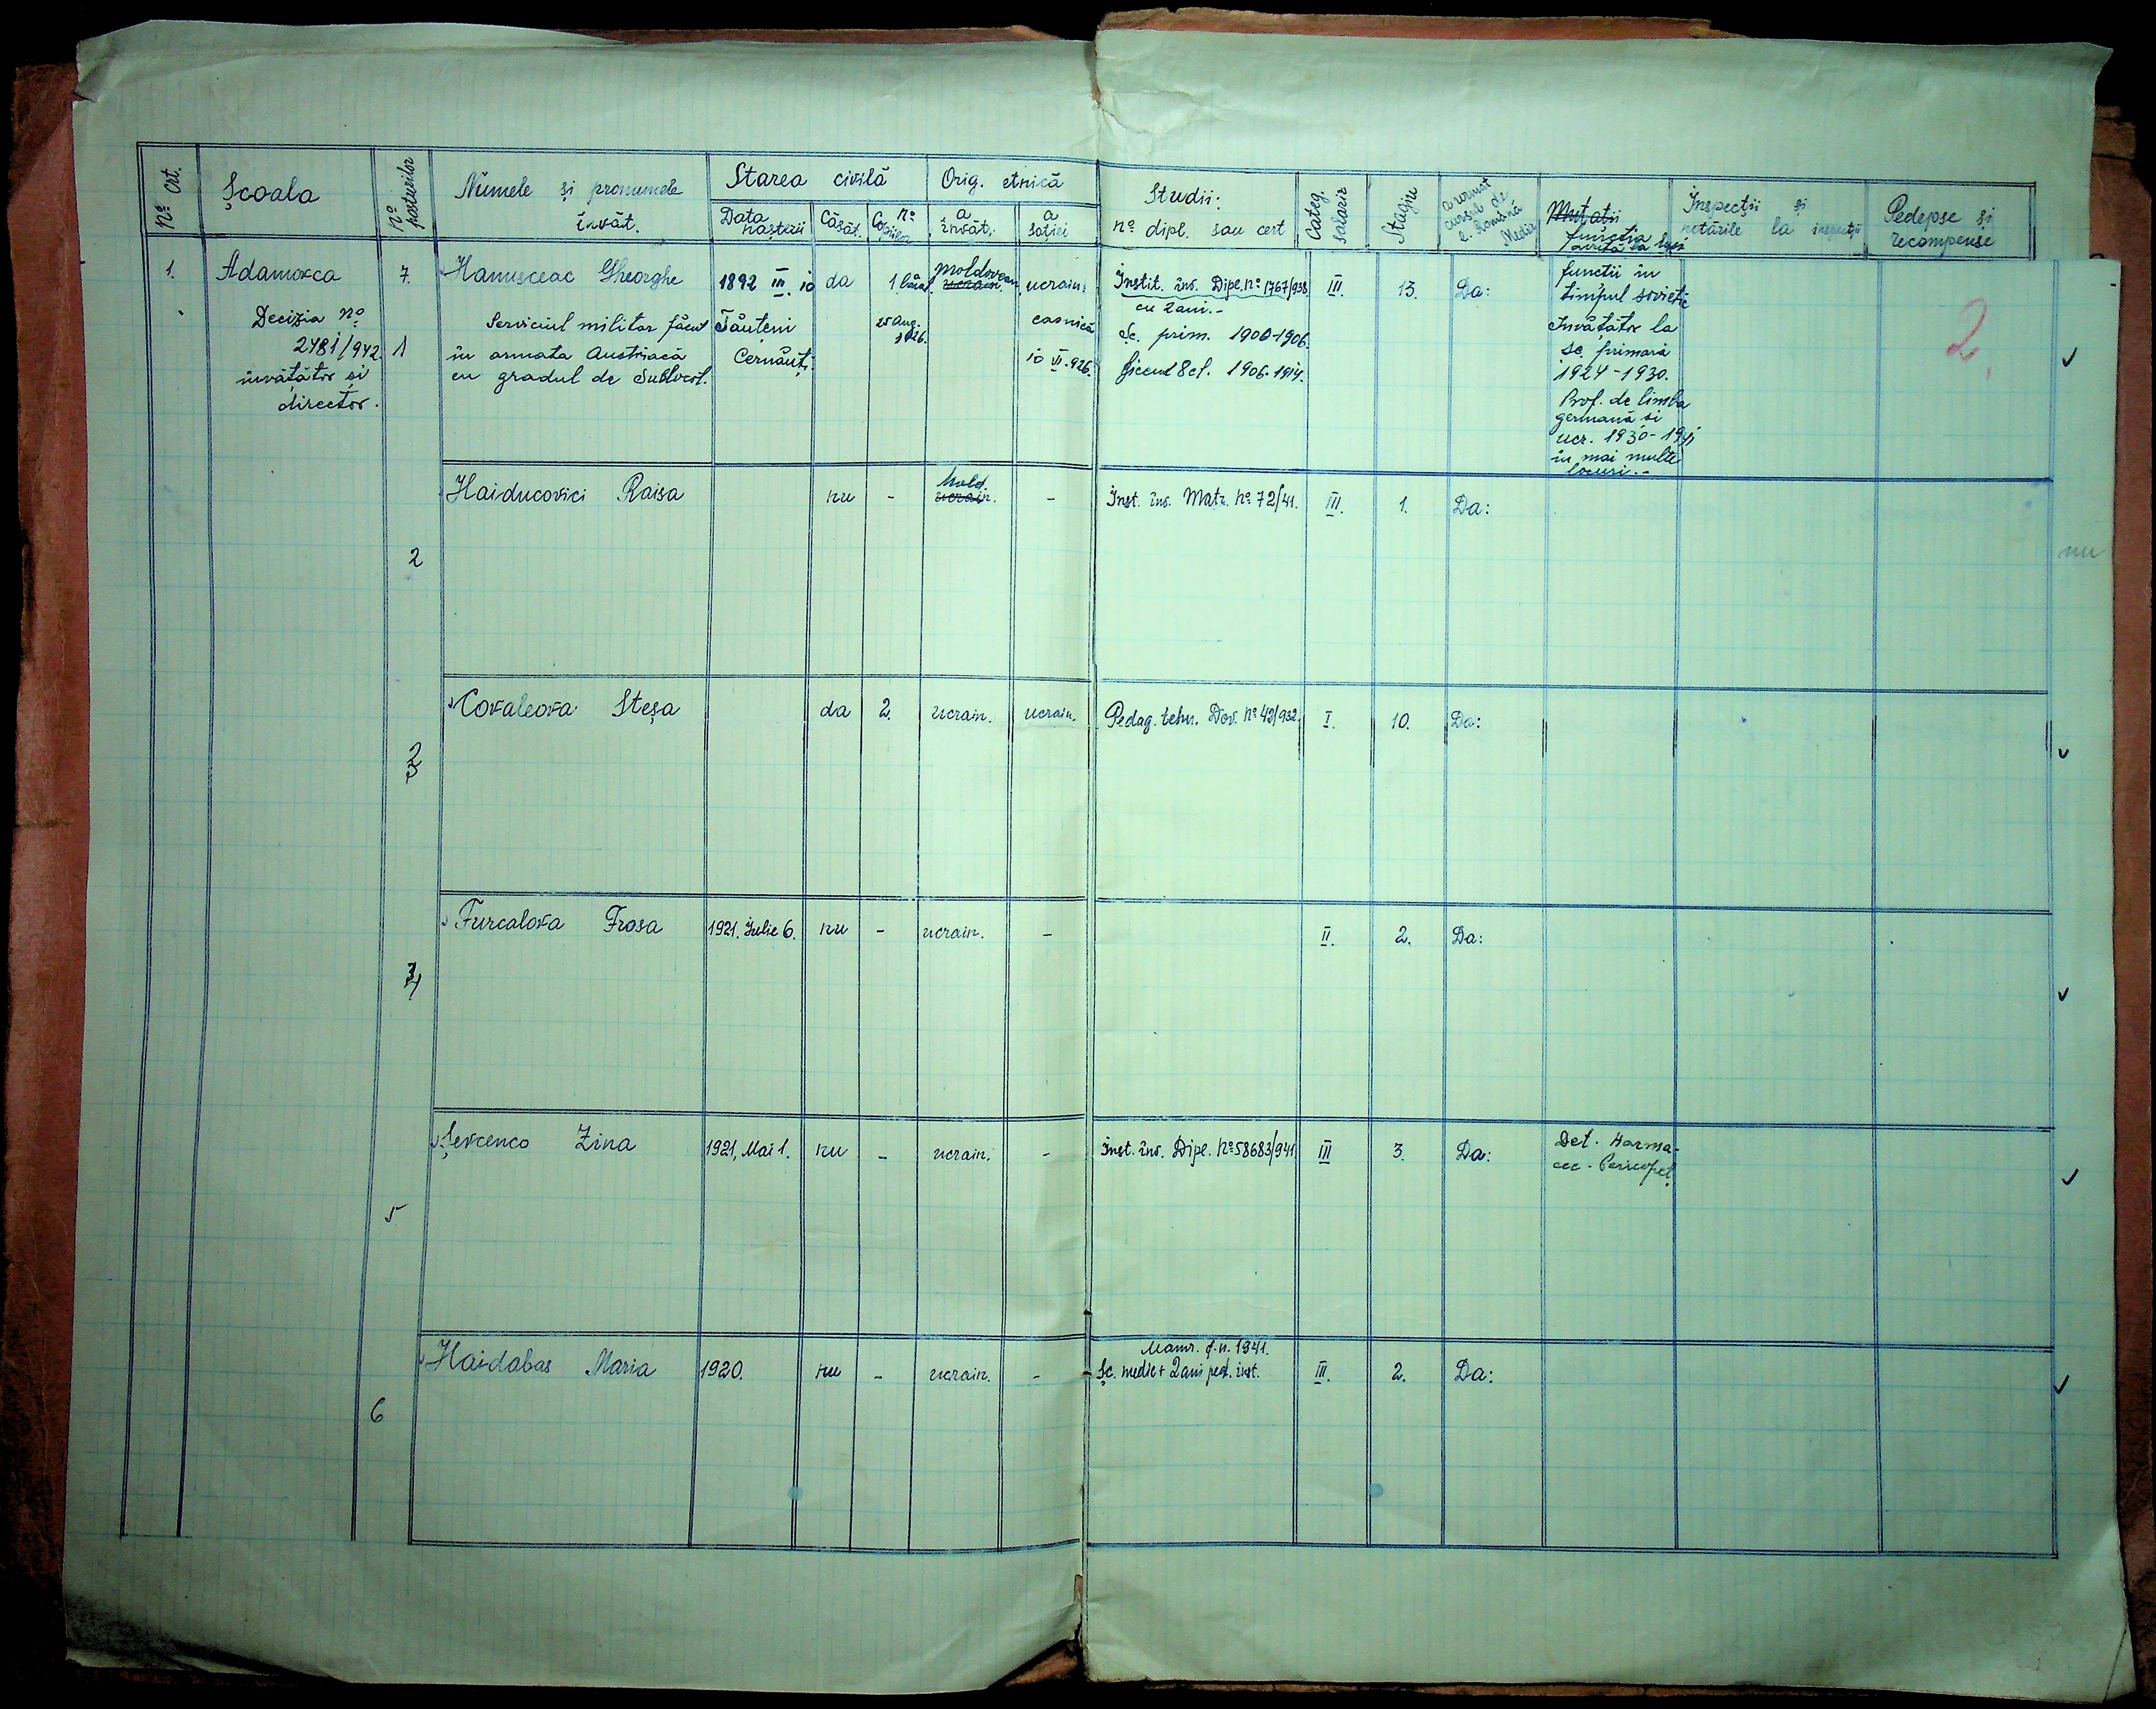 Nº crt.
Școala
Nº posturilor
Numele și pronumele
învăt.
Starea civilă
Data
nașterii
Căsăt.
Nº
Copiilor
Orig. etnică
a
învăt.
a
soției
Studii:
nº dipl. sau cert
Categ.
salarir
Stagiu
a urmat
cursul de
l. Română
Media
Mutatii
funcția
avută la
Inspecții și
notările la inspecții
Pedepse și
recompense
1. Adamovca 7. Hanusceac Gheorghe 1892 III. 10 da 1 băiat moldovean ucrain. ucrain. Instit. înv. Dipl. nº 1767/938 III. 13. Da:
cu 2 ani.-
Decizia Nº
2481/942.
învățător și
director.
1
Serviciul militar făcut
în armata Austriacă
cu gradul de Sublocot.
Tăuteni
Cernăuți.
25 Aug.
1926.
casnică
10 VI. 926.
Sc. prim. 1900-1906.
Liceul 8 cl. 1906-1914.
funcții în
timpul sovietic
Învățător la
sc. primară
1924-1930.
Prof. de limba
germană și
ucr. 1930-1941
în mai multe
locuri.-
2
Haiducovici Raisa nu - Mold ucrain. - Inst. înv. Matr. Nº 72/41. III. 1. Da:
2
nu
Covaleova Steșa da 2. ucrain. ucrain. Pedag. tehn. Dov. Nº 42/932. I. 10. Da:
2
3
Furcalova Frosa 1921. Iulie 6. nu - ucrain. - II. 2. Da:
3
4
Șevcenco Zina 1921, Mai 1. nu - ucrain. - Inst. înv. Dipl. Nº 58683/941 III 3. Da:
Det.
5
Haidabas Maria 1920. nu - ucrain. - Sc. medie + 2 ani ped. inst. III. 2. Da:
1941.
6